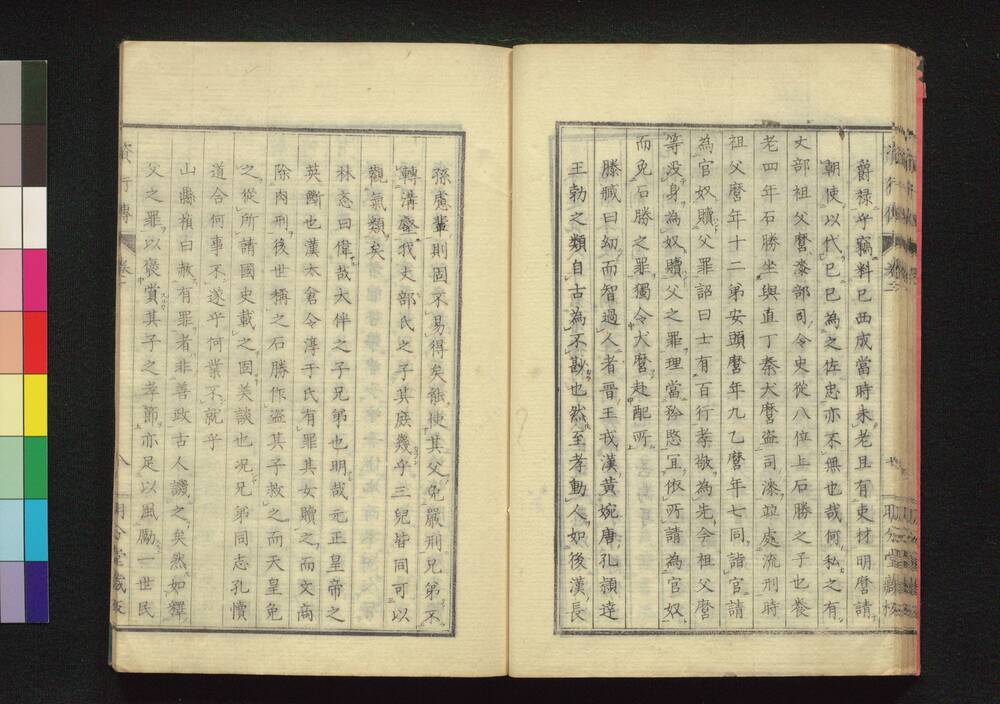 爵祿乎竊料已西成當時未老且有吏材明麿請
朝使以代已已為之佐忠亦不無也哉何私之有
丈部祖父麿漆部司令史從八位上石勝之子也養
老四年石勝坐與直丁秦犬麿盜司漆並處流刑時
祖父麿年十二第安頭麿年九乙麿年七同詣官請
為官奴贖父罪詔曰士有百行孝敬為先令祖父麿
等沒身為奴贖父之罪理當矜愍宜依所請為官奴
而免石勝之罪獨令犬麿赴配所
滕臧曰幼而智過人者晋王戎漢黃婉唐孔穎達
王勃之類自古為不尠也然至孝動人如後漢長
孫慮輩則固不易得矣雖使其父免嚴刑兄弟不
轉溝壑我丈部氏之子其庶幾乎三兒皆同可以
觀氣類矣
林恣曰偉哉大伴之子兄第也明哉元正皇帝之
英斷也漢太倉令淳于氏有罪其女贖之而文帝
除肉刑後世稱之石勝作盜其子救之而天皇免
之從所請國史載之固美談也况兄第同志孔懷
道合何事不遂乎何業不就乎
山縣禎曰赦有罪者非善政古人譏之矣然如釋
父之罪以褒賞其子之孝節亦足以風勵一世民